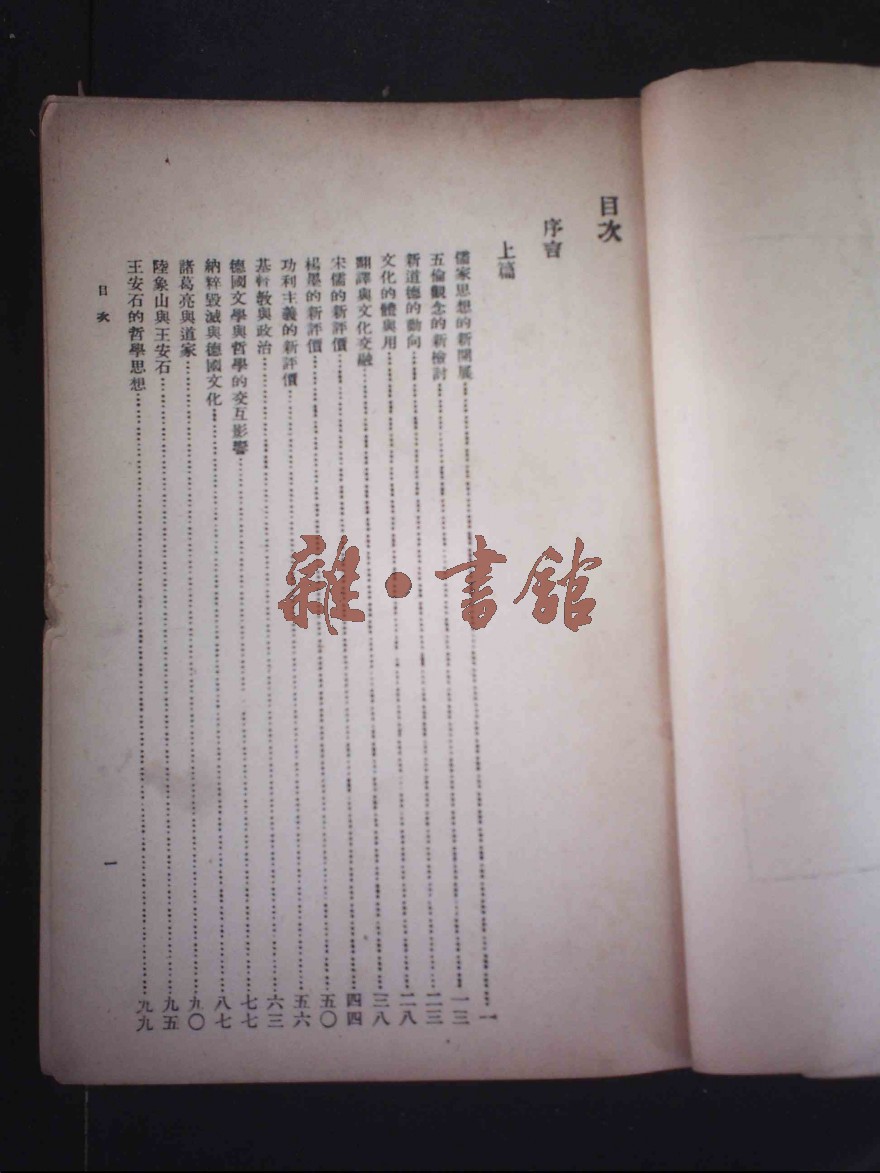 目次
序言
上篇
儒家思想的新開展……一
五倫觀念的新檢討……一三
新道德的動向……二三
文化的體與用……二八
翻譯與文化交融……三八
宋儒的新評價……四四
楊墨的新評價……五〇
功利主義的新評價……五六
基督教與政治……六三
德國文學與哲學的交互影響……七七
納粹毀滅與德國文化……八七
諸葛亮與道家……九〇
陸象山與王安石……九五
王安石的哲學思想……九九
目次 一
雜·書館